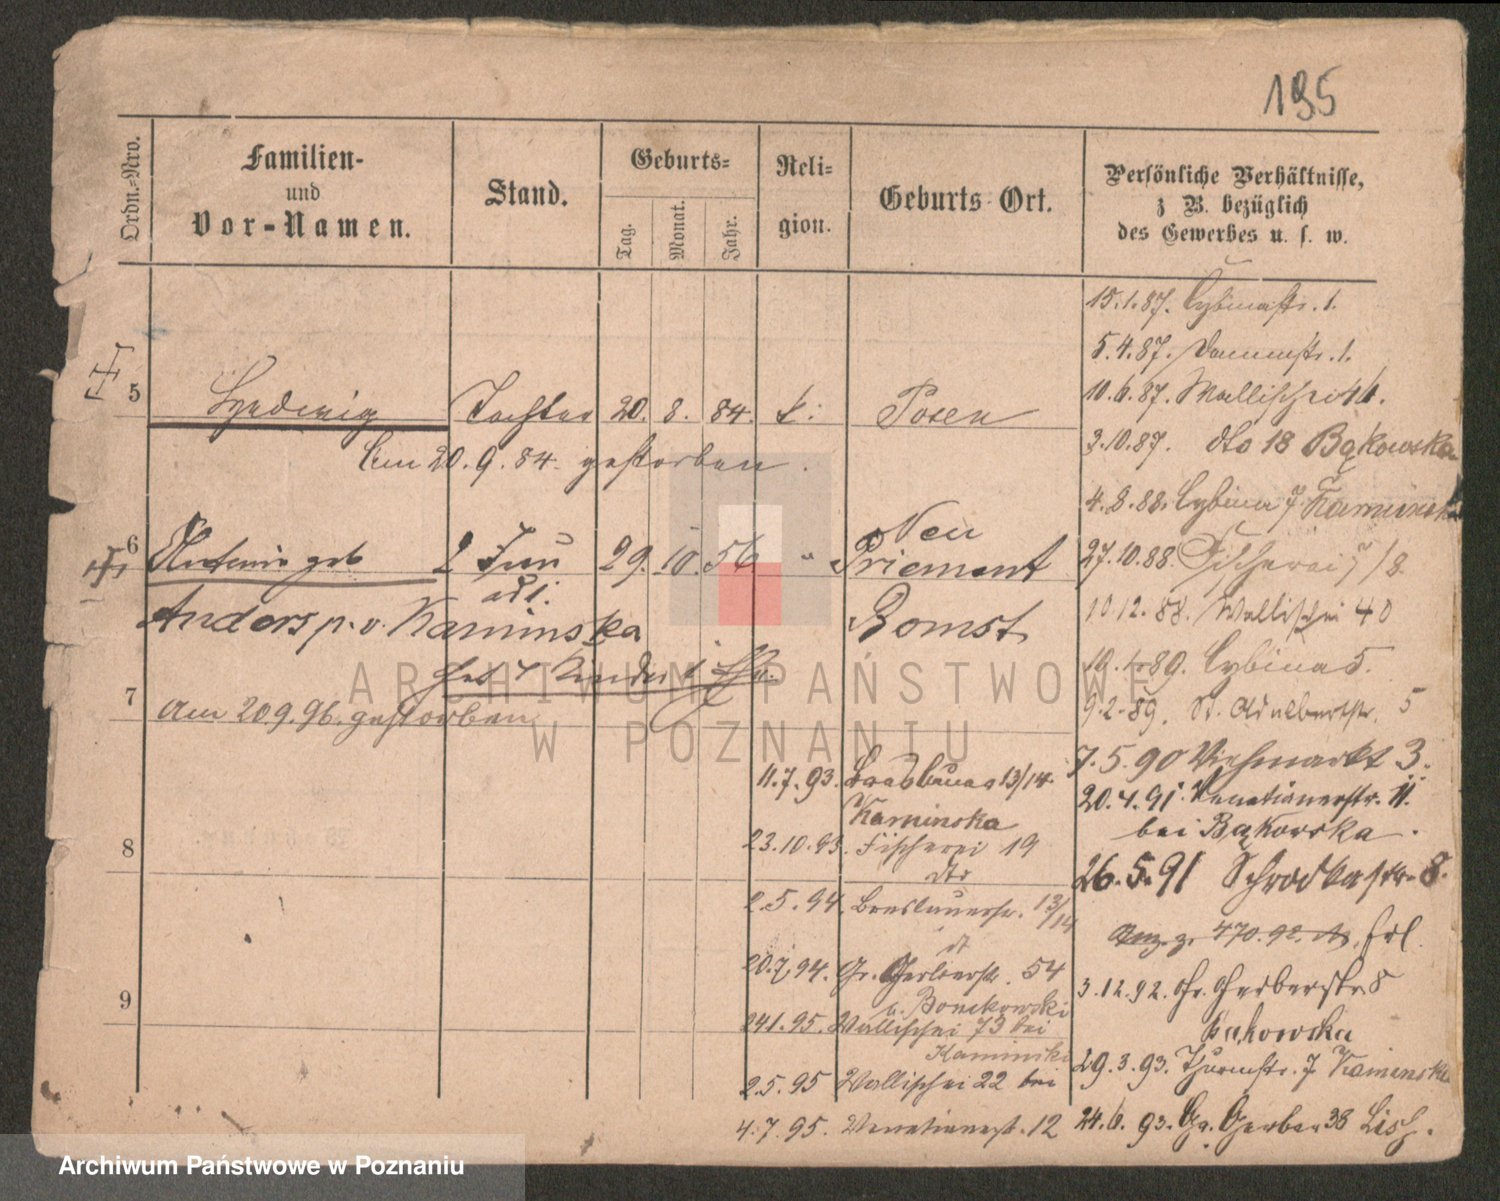 195
Ordn.=Nro.
Familien-
und
Vor-Namen.
Stand.
Geburts=
Tag.
Monat.
Jahr.
Reli-
gion.
Geburts Ort.
Persönliche Verhältnisse,
z B. bezüglich
des Gewerbes u. s. w.
5 Hedwig Tochter 20. 8. 84. k. Posen
Am 20.9.84 gestorben.
6 geb 2 Frau 29. 10. 56 " Neu
Priement
Anders p. v. Kaminska Bomst
7
Am 20 9. 96. gestorben
8
9
11.7.93. 13/14.
Kaminska
23.10.93. Fischerei 19
dto
2.5.94. Breslauerstr. 13/14
20.7.94. Gr. Gerberstr. 54
b. Bonikowski
24.1.95. Wallischei 73 bei
Kaminski
2.5.95 Wallischei 22 bei
4.7.95. Venetianerst. 12
15.1.87. Cybinastr. 1.
5.4.87. Dammstr. 1.
10.6.87. Wallischei
3.10.87. dto 18 Bąkowska
4.8.88. Cybina 7 Kaminska
27.10.88. Fischerei 7/8
10.12.88. Wallischei 40
Cybina 5.
9.2.89. St. Adalbertstr. 5
7.5.90 Viehmarkt 3.
20.4.91. Venetianerstr. 11.
bei Bąkowska.
26.5.91 Schrodkastr. 8.
470.92. Erl.
3.12.92. Gr. Gerberstr. 8
Bąkowska
29.3.93. Thurmstr. 7 Kaminska
24.6.93. Gr. Gerber 38
ARCHIWUM PAŃSTWOWE
W POZNANIU
Archiwum Państwowe w Poznaniu